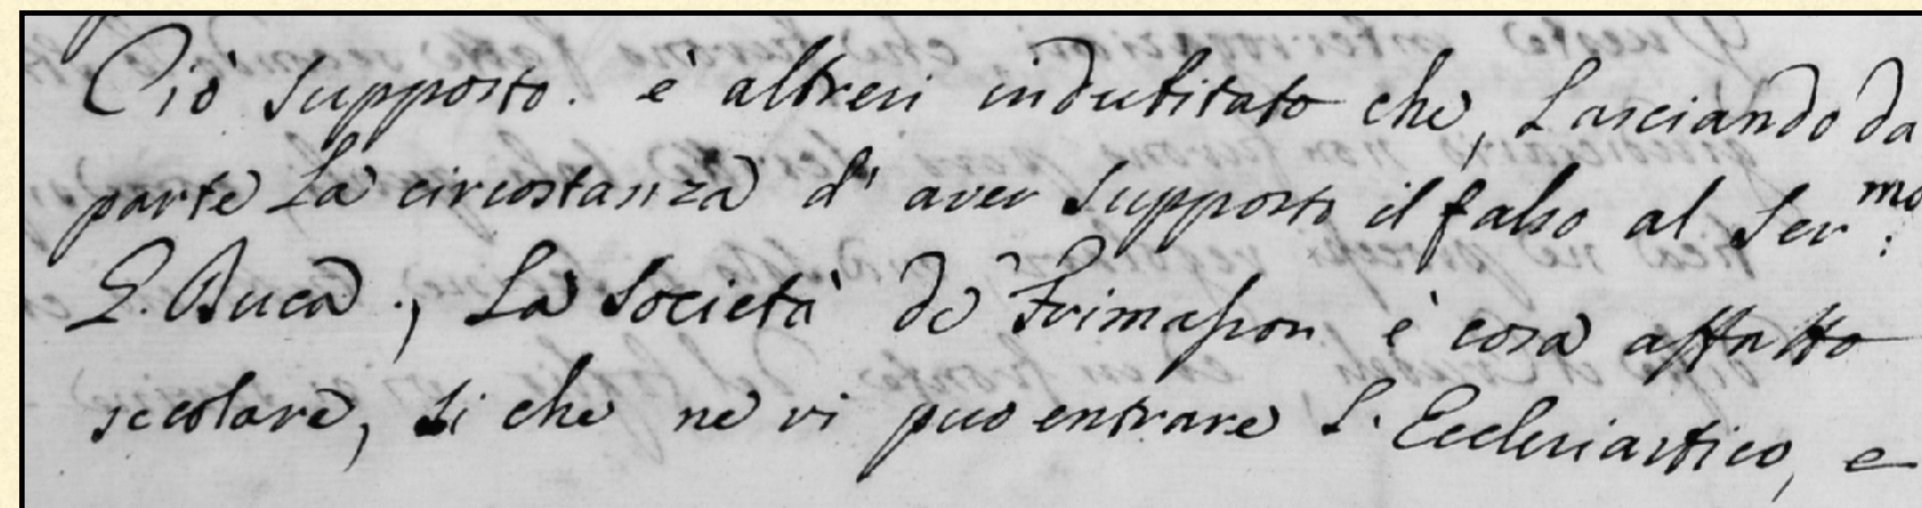 Ciò supposto. è altresi indubitato che, Lasciando da
parte La circostanza d' aver supposto il falso al Ser.mo
G. Duca., La Società de Frimasson è cosa affatto
secolare, si che ne vi può entrare L'Ecclesiastico, e